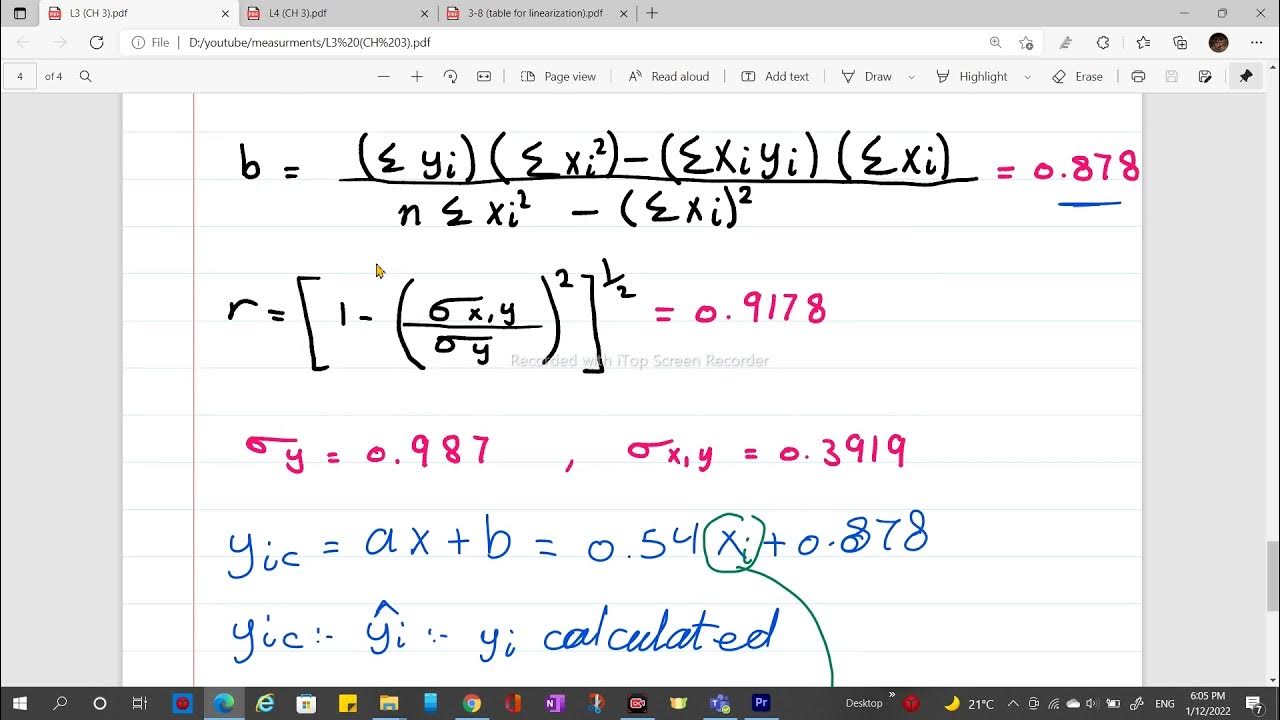 L3 (CH 3).pdf L4 (CH 3).pdf 3-8 (table for linearization).pdf
File D:/youtube/measurments/L3%20(CH%203).pdf
4 of 4 Page view Read aloud Add text Draw Highlight Erase
b = (Σ yi) (Σ xi²) - (Σ xi yi) (Σ xi) / n Σ xi² - (Σ xi)² = 0.878
r = [1 - (σx,y / σy)²]^1/2 = 0.9178
Recorded with iTop Screen Recorder
σy = 0.987 , σx,y = 0.3919
yic = ax + b = 0.54 xi + 0.878
yic :- ŷi :- yi calculated
Desktop 21°C ENG 6:05 PM
1/12/2022